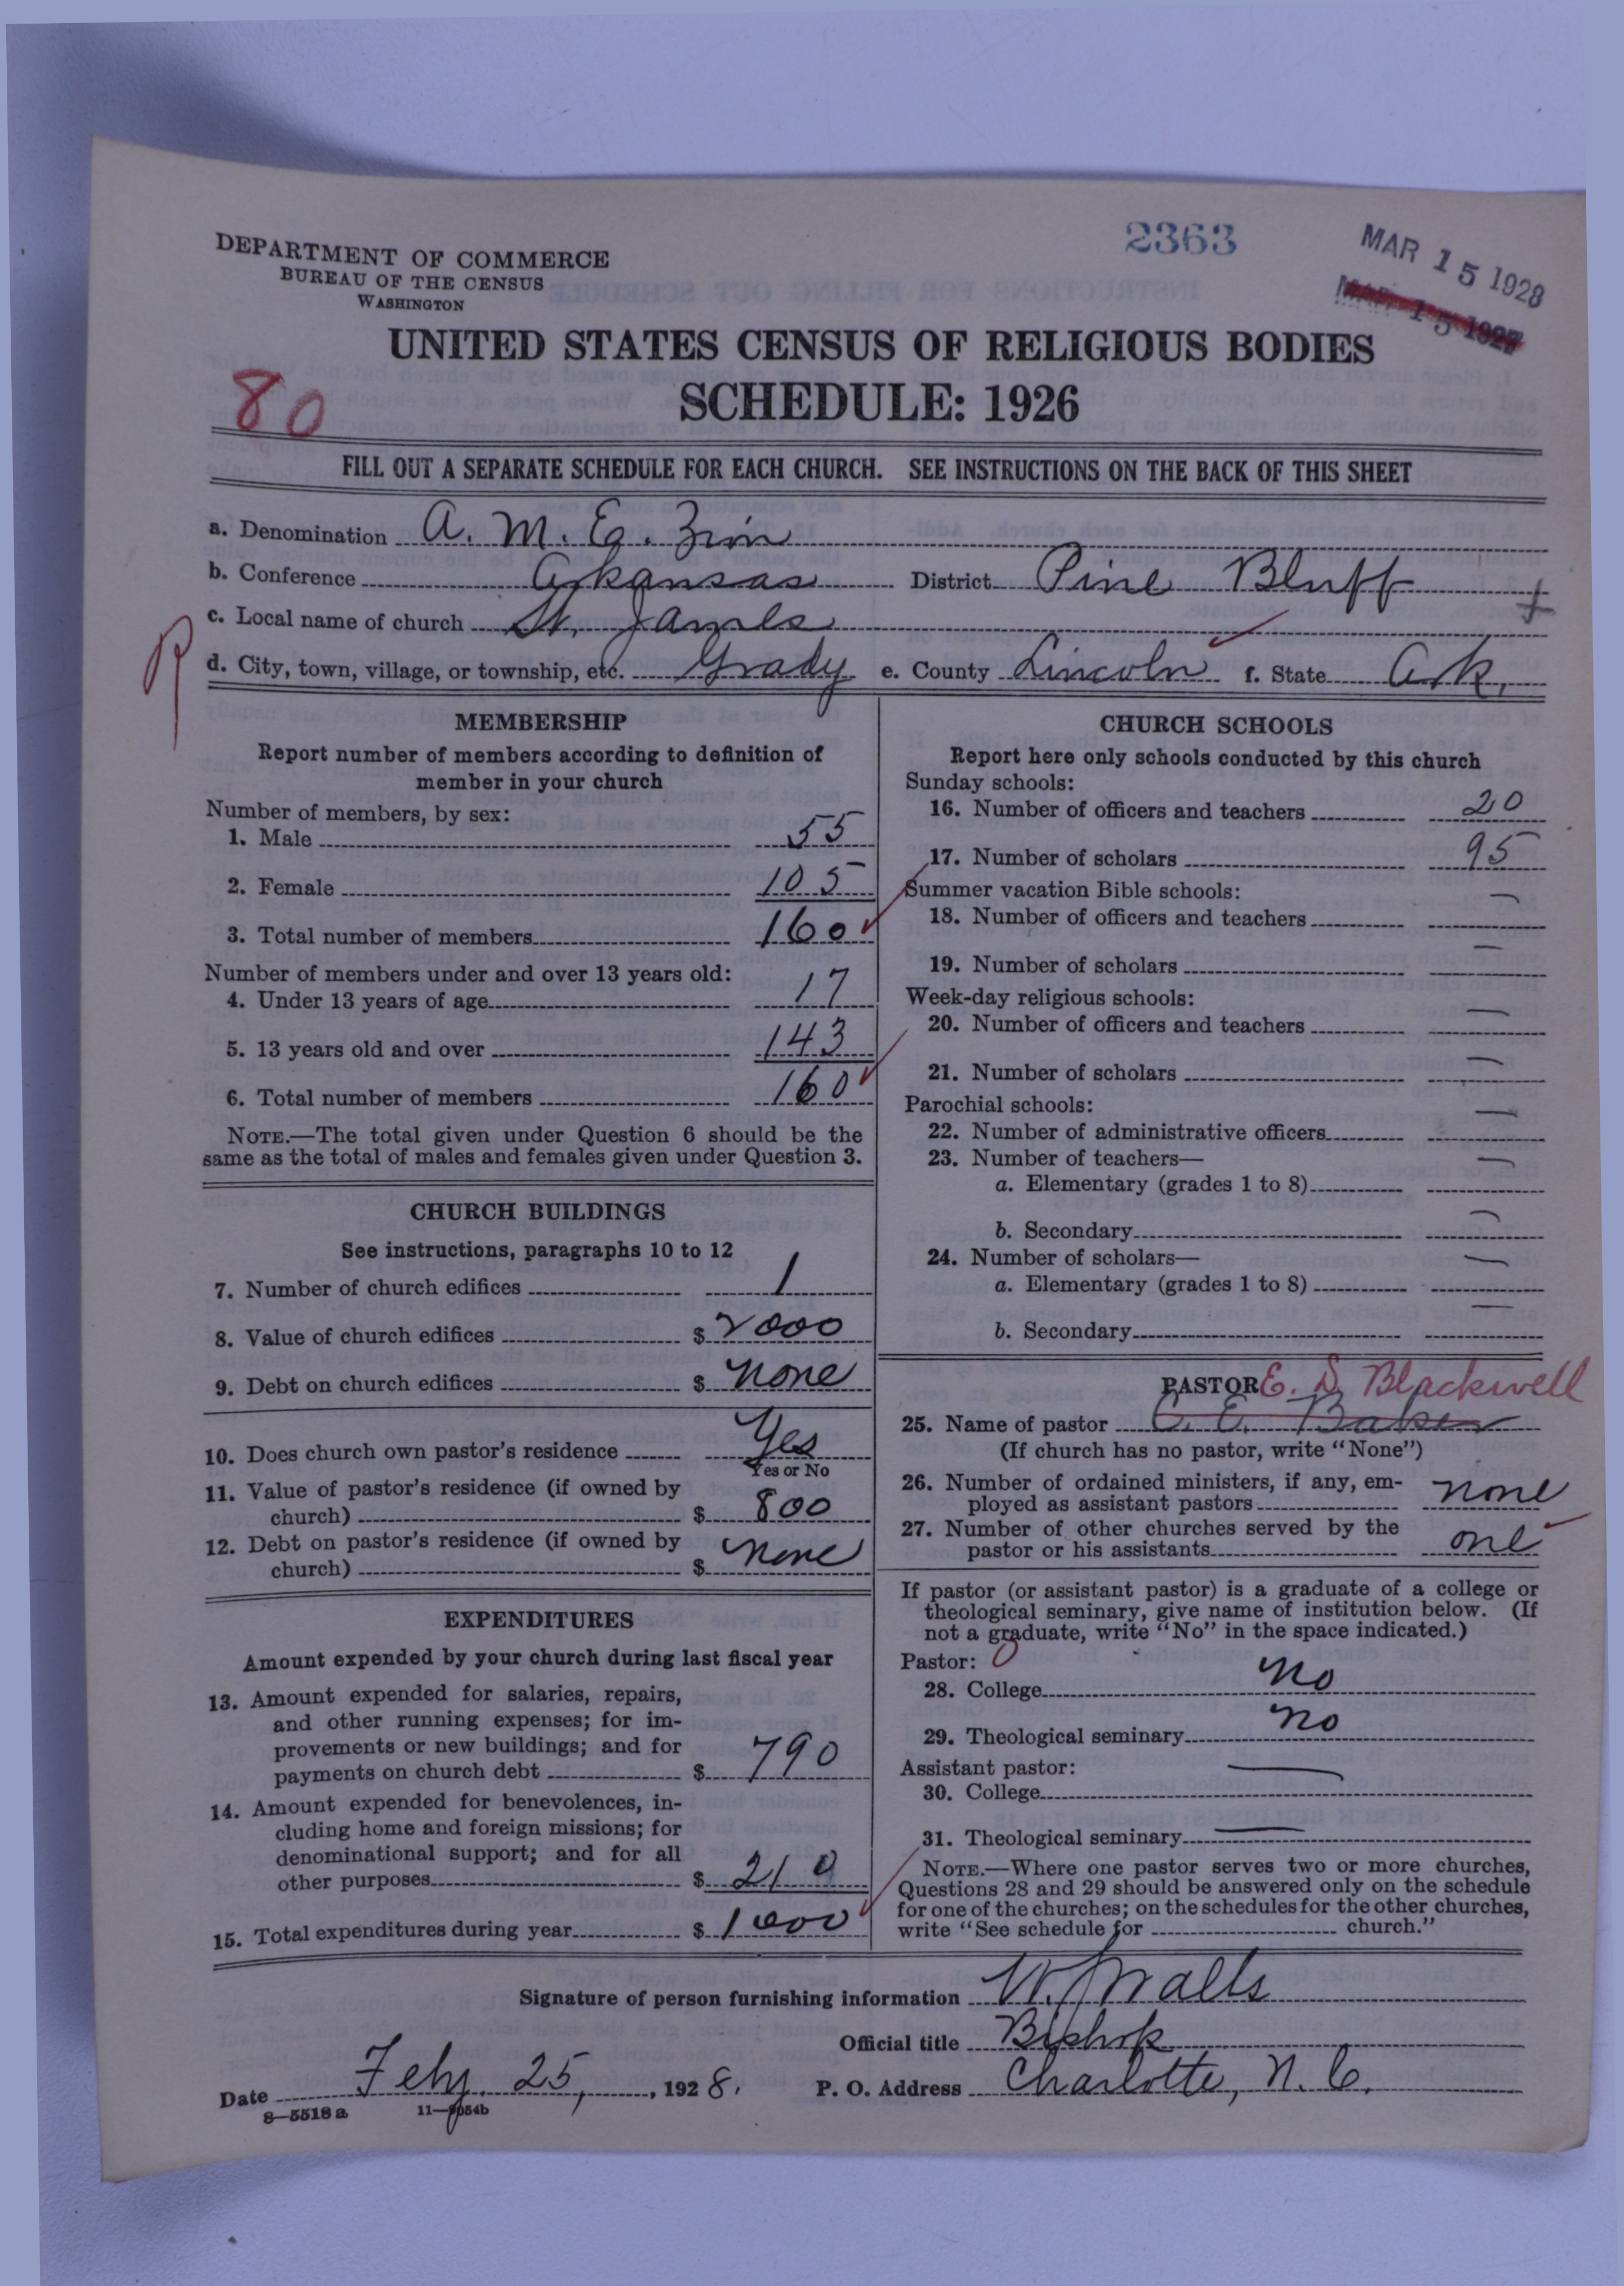 2363
MAR 15 1928
MAR 15 1927
DEPARTMENT OF COMMERCE
BUREAU OF THE CENSUS
WASHINGTON
UNITED STATES CENSUS OF RELIGIOUS BODIES
SCHEDULE: 1926
80
FILL OUT A SEPARATE SCHEDULE FOR EACH CHURCH. SEE INSTRUCTIONS ON THE BACK OF THIS SHEET
a. Denomination A. M. E. Zion
b. Conference Arkansas District Pine Bluff
c. Local name of church St. James
R
d. City, town, village, or township, etc. Grady e. County Lincoln f. State Ark.
MEMBERSHIP
Report number of members according to definition of
member in your church
Number of members, by sex:
1. Male 55
2. Female 105
3. Total number of members 160
Number of members under and over 13 years old:
4. Under 13 years of age 17
5. 13 years old and over 143
6. Total number of members 160
NOTE.—The total given under Question 6 should be the
same as the total of males and females given under Question 3.
CHURCH BUILDINGS
See instructions, paragraphs 10 to 12
7. Number of church edifices 1
8. Value of church edifices $ 2000
9. Debt on church edifices $ none
10. Does church own pastor's residence Yes
Yes or No
11. Value of pastor's residence (if owned by
church) $ 800
12. Debt on pastor's residence (if owned by
church) $ none
EXPENDITURES
Amount expended by your church during last fiscal year
13. Amount expended for salaries, repairs,
and other running expenses; for im-
provements or new buildings; and for
payments on church debt $ 790
14. Amount expended for benevolences, in-
cluding home and foreign missions; for
denominational support; and for all
other purposes $ 210
15. Total expenditures during year $ 1000
CHURCH SCHOOLS
Report here only schools conducted by this church
Sunday schools:
16. Number of officers and teachers 20
17. Number of scholars 95
Summer vacation Bible schools:
18. Number of officers and teachers —
19. Number of scholars —
Week-day religious schools:
20. Number of officers and teachers —
21. Number of scholars —
Parochial schools:
22. Number of administrative officers —
23. Number of teachers—
a. Elementary (grades 1 to 8) —
b. Secondary —
24. Number of scholars—
a. Elementary (grades 1 to 8) —
b. Secondary —
PASTOR E. D. Blackwell
25. Name of pastor C. E. Baker
(If church has no pastor, write "None")
26. Number of ordained ministers, if any, em-
ployed as assistant pastors none
27. Number of other churches served by the
pastor or his assistants one
If pastor (or assistant pastor) is a graduate of a college or
theological seminary, give name of institution below. (If
not a graduate, write "No" in the space indicated.)
Pastor: 0
28. College no
29. Theological seminary no
Assistant pastor:
30. College —
31. Theological seminary —
NOTE.—Where one pastor serves two or more churches,
Questions 28 and 29 should be answered only on the schedule
for one of the churches; on the schedules for the other churches,
write "See schedule for church."
Signature of person furnishing information W. J. Walls
Official title Bishop
Date Feby. 25, , 1928. P. O. Address Charlotte, N. C.
8—5518 a 11—9054b